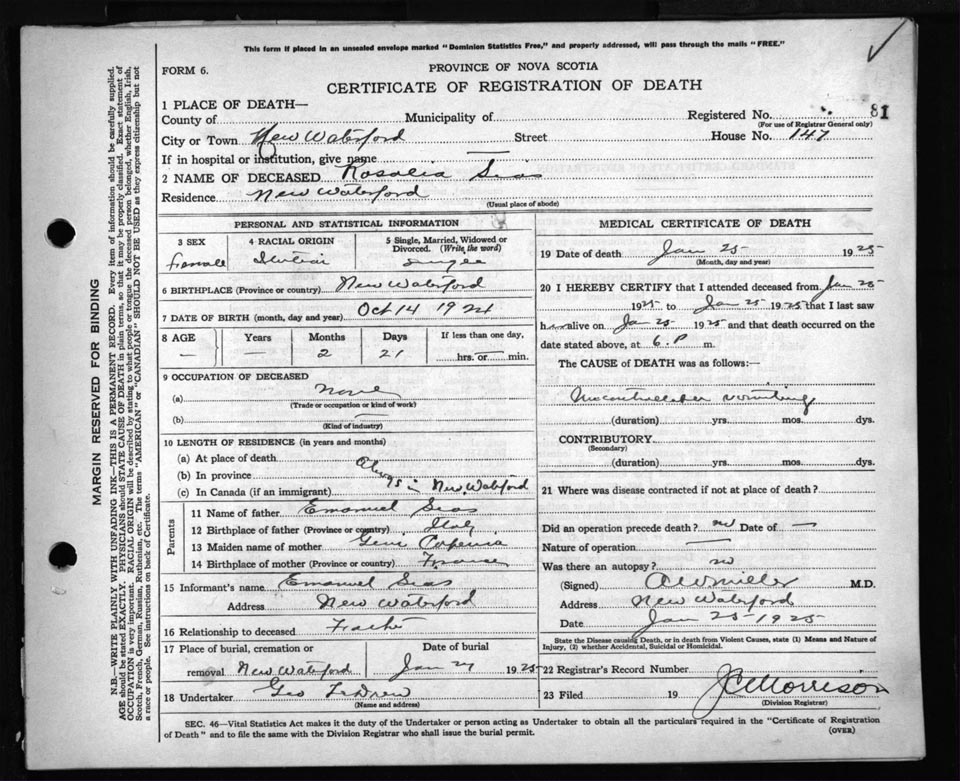 This form if placed in an unsealed envelope marked "Dominion Statistics Free," and properly addressed, will pass through the mails "FREE."
FORM 6.
PROVINCE OF NOVA SCOTIA
CERTIFICATE OF REGISTRATION OF DEATH
1 PLACE OF DEATH—
County of Municipality of Registered No. 81
(For use of Registrar General only)
City or Town New Waterford Street House No. 147
If in hospital or institution, give name —
2 NAME OF DECEASED Rosalia Sias
Residence New Waterford
(Usual place of abode)
PERSONAL AND STATISTICAL INFORMATION
3 SEX 4 RACIAL ORIGIN 5 Single, Married, Widowed or Divorced. (Write the word)
Female Single
6 BIRTHPLACE (Province or country) New Waterford
7 DATE OF BIRTH (month, day and year) Oct 14 1924
8 AGE Years Months Days If less than one day,
— — 2 21 hrs. or min.
9 OCCUPATION OF DECEASED
(a) None
(Trade or occupation or kind of work)
(b) —
(Kind of industry)
10 LENGTH OF RESIDENCE (in years and months)
(a) At place of death
(b) In province Always in New Waterford
(c) In Canada (if an immigrant)
Parents
11 Name of father Emanuel Sias
12 Birthplace of father (Province or country) Italy
13 Maiden name of mother
14 Birthplace of mother (Province or country) France
15 Informant's name Emanuel Sias
Address New Waterford
16 Relationship to deceased Father
17 Place of burial, cremation or removal New Waterford Date of burial Jan 27 1925
18 Undertaker Geo LeDrew
(Name and address)
MEDICAL CERTIFICATE OF DEATH
19 Date of death Jan 25 1925
(Month, day and year)
20 I HEREBY CERTIFY that I attended deceased from Jan 25
1925 to Jan 25 1925 that I last saw
h alive on Jan 25 1925 and that death occurred on
date stated above, at 6. P m.
The CAUSE of DEATH was as follows:—
vomiting
(duration) yrs. mos. dys.
CONTRIBUTORY
(Secondary)
(duration) yrs. mos. dys.
21 Where was disease contracted if not at place of death?
Did an operation precede death? no Date of —
Nature of operation —
Was there an autopsy? no
(Signed) M.D.
Address New Waterford
Date Jan 25 - 1925
State the Disease causing Death, or in death from Violent Causes, state (1) Means and Nature of
Injury, (2) whether Accidental, Suicidal or Homicidal.
22 Registrar's Record Number
23 Filed 19 J C Morrison
(Division Registrar)
SEC. 46—Vital Statistics Act makes it the duty of the Undertaker or person acting as Undertaker to obtain all the particulars required in the "Certificate of Registration
of Death" and to file the same with the Division Registrar who shall issue the burial permit. (OVER)
MARGIN RESERVED FOR BINDING
N.B.—WRITE PLAINLY WITH UNFADING INK—THIS IS A PERMANENT RECORD. Every item of information should be carefully supplied.
AGE should be stated EXACTLY. PHYSICIANS should STATE CAUSE OF DEATH in plain terms, so that it may be properly classified. Exact statement of
OCCUPATION is very important. RACIAL ORIGIN will be described by stating to what people or tongue the deceased person belonged, whether English, Irish,
Scotch, French, German, Russian, Ruthenian, etc. The terms "AMERICAN" or "CANADIAN" SHOULD NOT BE USED as they express citizenship but not
a race or people. See instructions on back of Certificate.